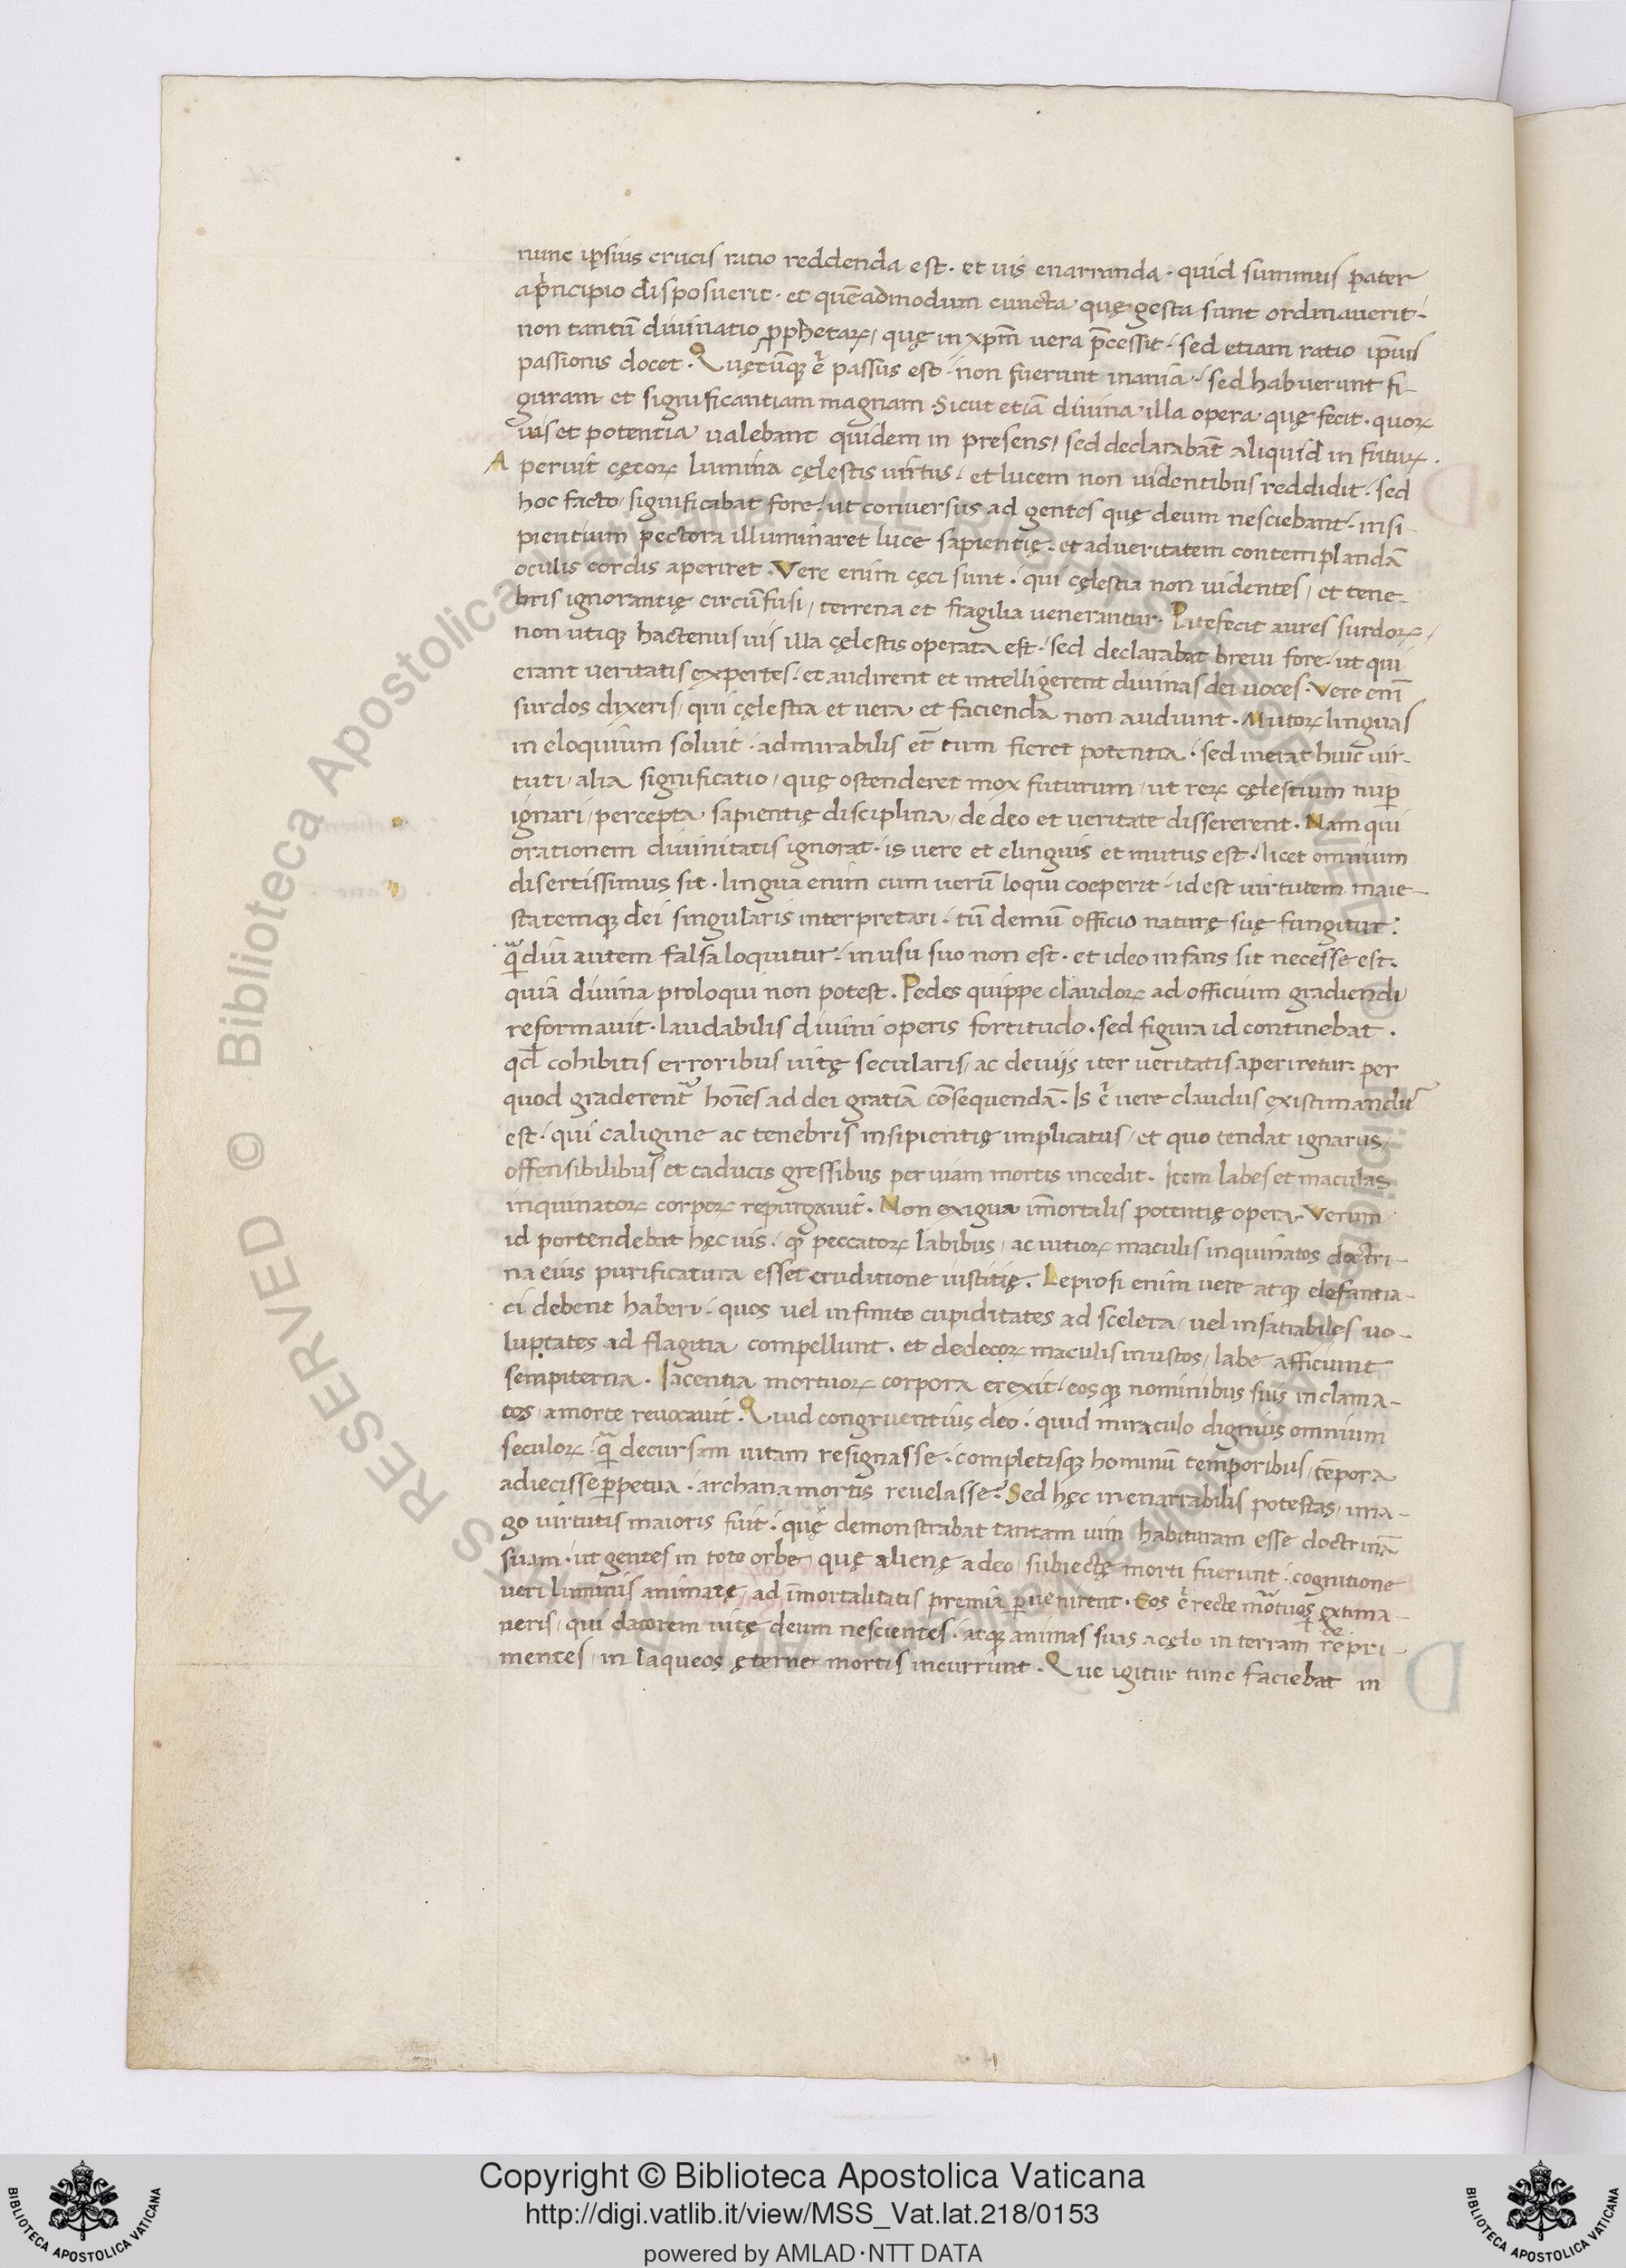 nunc ipsius crucis ratio reddenda est. et uis enarranda. quid summus pater
aprīncipio disposuerit. et quēadmodum cuncta quę gesta sunt ordinauerit.
non tantū diuinatio ꝓphetaꝝ, quę in xp̄m uera p̄cessit. sed etiam ratio ip̄ius
passionis docet. Quęcūqꝫ .n. passus est. non fuerunt inania. sed habuerunt fi-
guram et significantiam magnam. Sicut etiā diuina illa opera quę fecit. quoꝝ
uis et potentia ualebant quidem in presens, sed declarabāt aliquid in futuꝝ.
Aperuit cęcoꝝ lumina cęlestis uirtus. et lucem non uidentibus reddidit. sed
hoc facto, significabat fore. ut conuersus ad gentes quę deum nesciebant. insi-
pientium pectora illuminaret luce sapientię. et ad ueritatem contemplandā
oculis cordis aperiret. Vere enim cęci sunt. qui cęlestia non uidentes, et tene-
bris ignorantię circūfusi, terrena et fragilia uenerantur. Patefecit aures surdoꝝ,
non utiqꝫ hactenus uis illa cęlestis operata est. sed declarabat breui fore. ut qui
erant ueritatis expertes. et audirent et intelligerent diuinas dei uoces. Vere enī
surdos dixeris, qui cęlestia et uera et facienda non audiunt. Mutoꝝ linguas
in eloquium soluit. admirabilis et̄ tum fieret potentia. sed inerat huic uir-
tuti, alia significatio, quę ostenderet mox futurum, ut reꝝ cęlestium nuꝑ
ignari, percepta sapientię disciplina, de deo et ueritate dissererent. Nam qui
orationem diuinitatis ignorat. is uere et elinguis et mutus est. licet omnium
disertissimus sit. lingua enim cum uerū loqui coeperit. id est uirtutem maie-
statemqꝫ dei singularis interpretari. tū demū officio naturę suę fungitur.
q̄diu autem falsa loquitur. in usu suo non est. et ideo infans sit necesse est.
quia diuina proloqui non potest. Pedes quippe claudoꝝ ad officium gradiendi
reformauit. laudabilis diuini operis fortitudo. sed figura id continebat.
qd̄ cohibitis erroribus uitę secularis, ac deuijs iter ueritatis aperiretur. per
quod graderent̄ hoīes ad dei gratiā cōsequendā. Is .n. uere claudus existimandū
est. qui caligine ac tenebris insipientię implicatus, et quo tendat ignarus,
offensibilibus et caducis gressibus per uiam mortis incedit. Item labes et maculas
inquinatoꝝ corpoꝝ repurgauit. Non exigua īmortalis potentię opera. Verum
id portendebat hęc uis. qꝫ peccatoꝝ labibus, ac uitioꝝ maculis inquinatos doctri-
na eius purificatura esset eruditione iustitię. Leprosi enim uere atqꝫ elefantia-
ci debent haberi. quos uel infinite cupiditates ad scelera, uel insatiabiles uo-
luptates ad flagitia compellunt. et dedecoꝝ maculis inustos, labe afficiunt
sempiterna. Iacentia mortuoꝝ corpora erexit. eosqꝫ nominibus suis inclama-
tos, a morte reuocauit. Quid congruentius deo. quid miraculo dignius omnium
seculoꝝ. q̄ decursam uitam resignasse. completisqꝫ hominū temporibus, tēpora
adiecisse ꝑpetua. archana mortis reuelasse? Sed hęc inenarrabilis potestas, ima-
go uirtutis maioris fuit. quę demonstrabat tantam uim habituram esse doctrinā
suam. ut gentes in toto orbe, quę alienę a deo, subiectę morti fuerunt. cognitione
ueri luminis animatę, ad īmortalitatis premia ꝑuenirent. Eos .n. recte mortuos extima-
ueris, qui datorem uitę deum nescientes. atqꝫ animas suas a cęlo in terram depri-
mentes, in laqueos ęterne mortis incurrunt. Que igitur tunc faciebat in
Copyright © Biblioteca Apostolica Vaticana
http://digi.vatlib.it/view/MSS_Vat.lat.218/0153
powered by AMLAD·NTT DATA